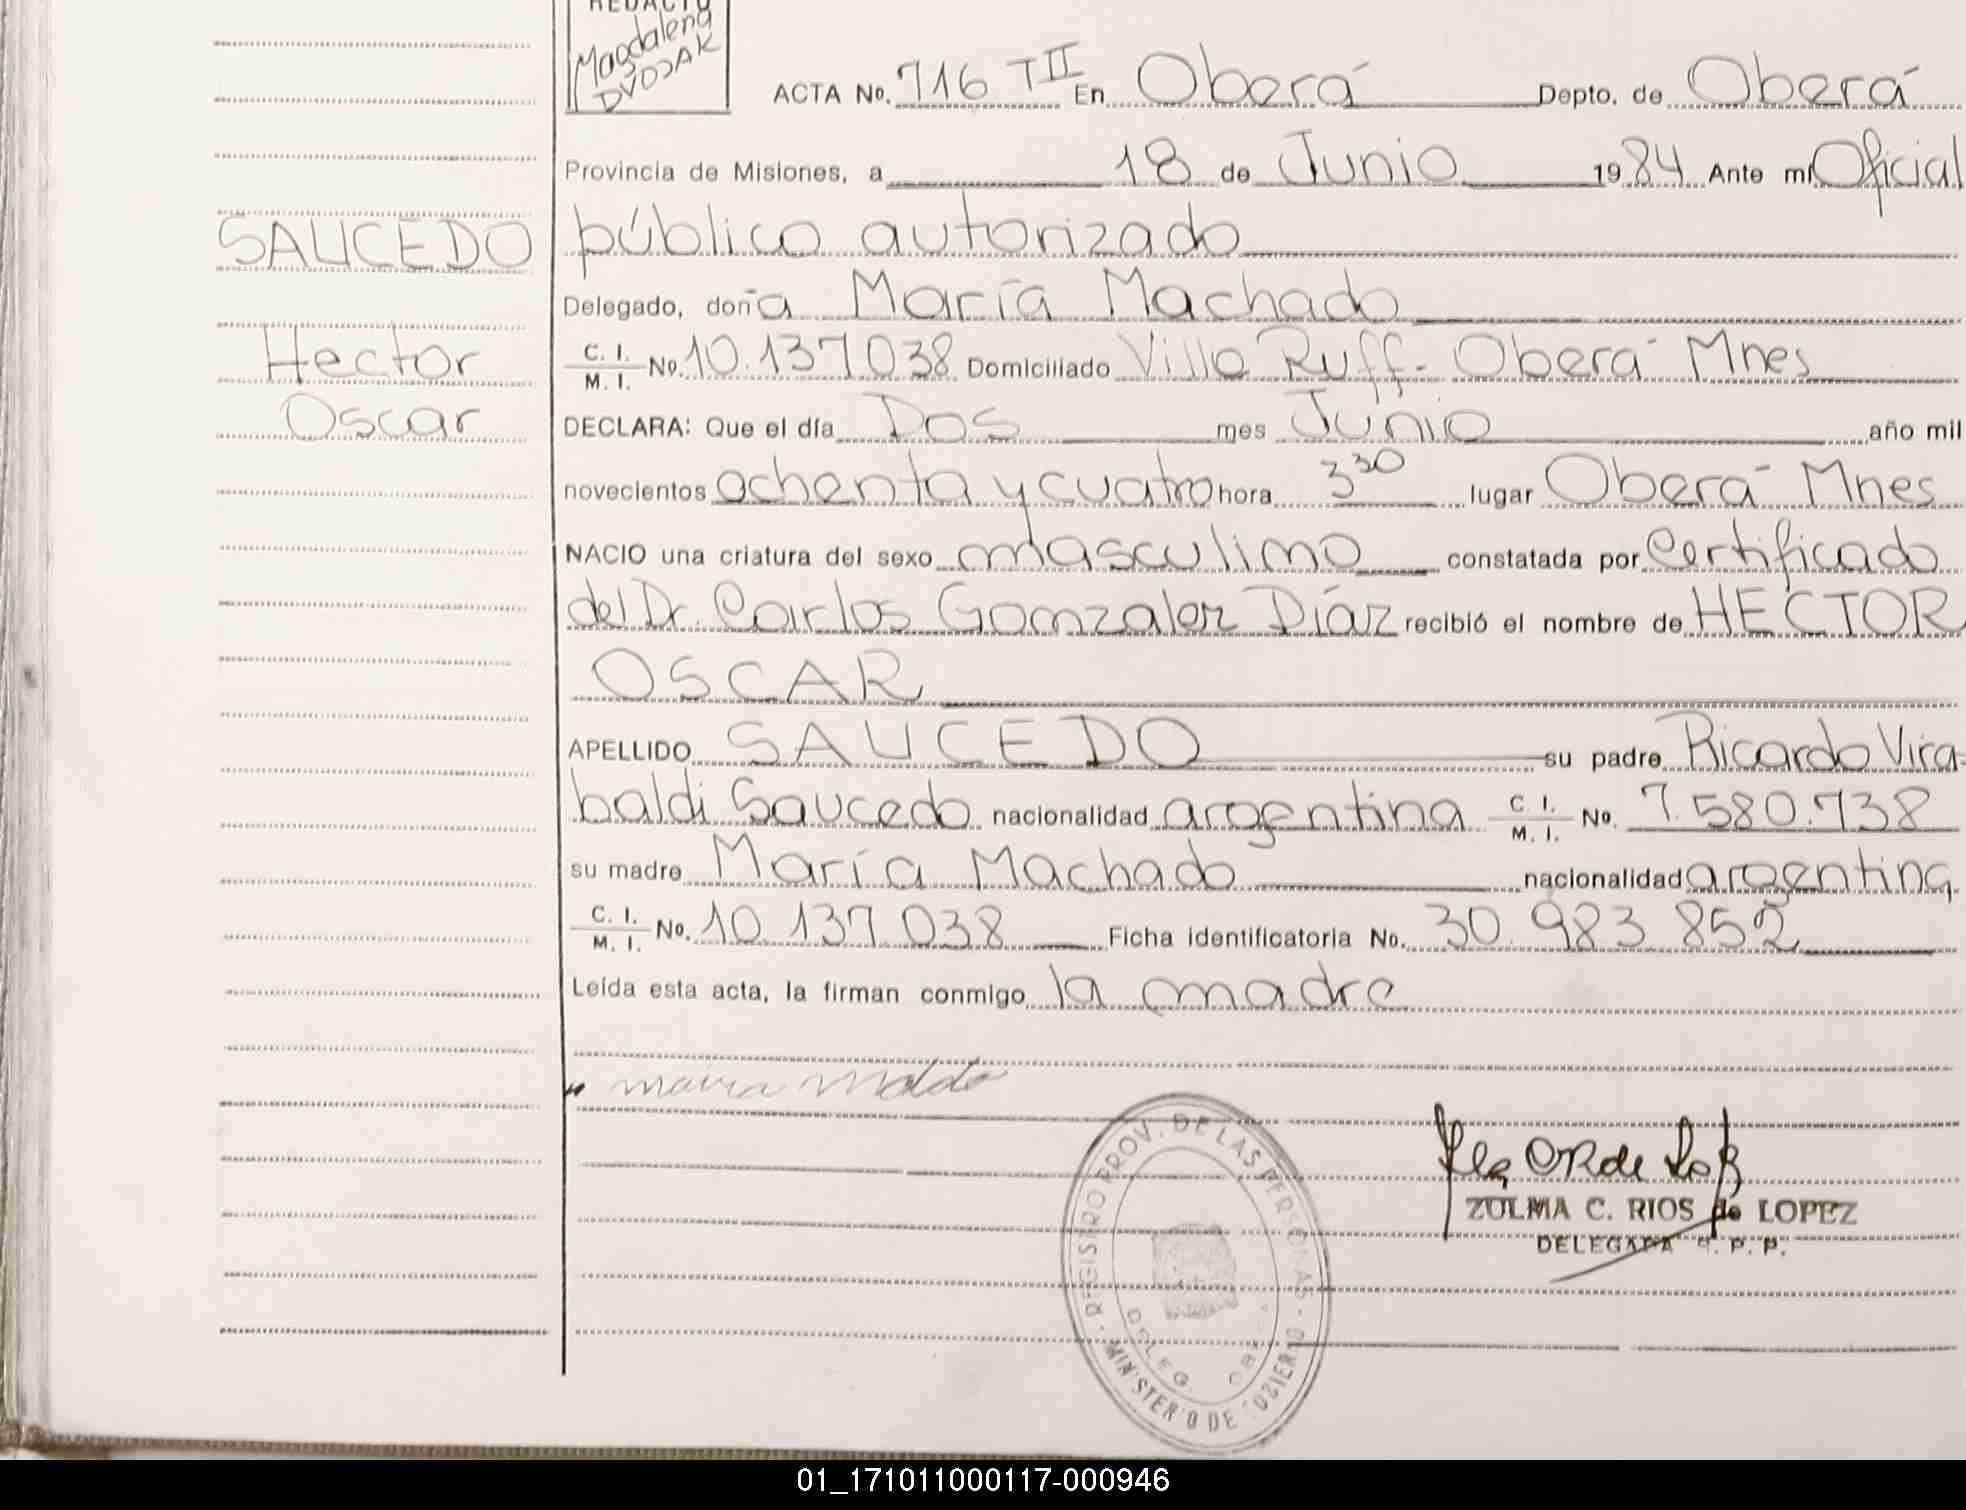 REDACTO
Magdalena
DVOJAK
ACTA No. 716 T II En Oberá Depto. de Oberá
Provincia de Misiones, a 18 de Junio 1984 Ante mí Oficial
público autorizado
SAUCEDO
Delegado, doña María Machado
C. I.
M. I. No. 10.137038 Domiciliado Villa Ruff- Oberá Mnes
Hector
Oscar
DECLARA: Que el día Dos mes Junio año mil
novecientos ochenta y cuatro hora 3 30 lugar Oberá Mnes
NACIO una criatura del sexo masculino constatada por Certificado
del Dr. Carlos Gonzalez Díaz recibió el nombre de HECTOR
OSCAR
APELLIDO SAUCEDO su padre Ricardo Vira-
baldi Saucedo nacionalidad argentina C. I.
M. I. No. 7.580.738
su madre María Machado nacionalidad argentina
C. I.
M. I. No. 10.137.038 Ficha identificatoria No. 30.983.852
Leída esta acta, la firman conmigo la madre
REGISTRO PROV. DE LAS PERSONAS
MINISTERIO DE GOBIERNO
DELEG.
ZULMA C. RIOS de LOPEZ
DELEGADA R. P. P.
01_171011000117-000946